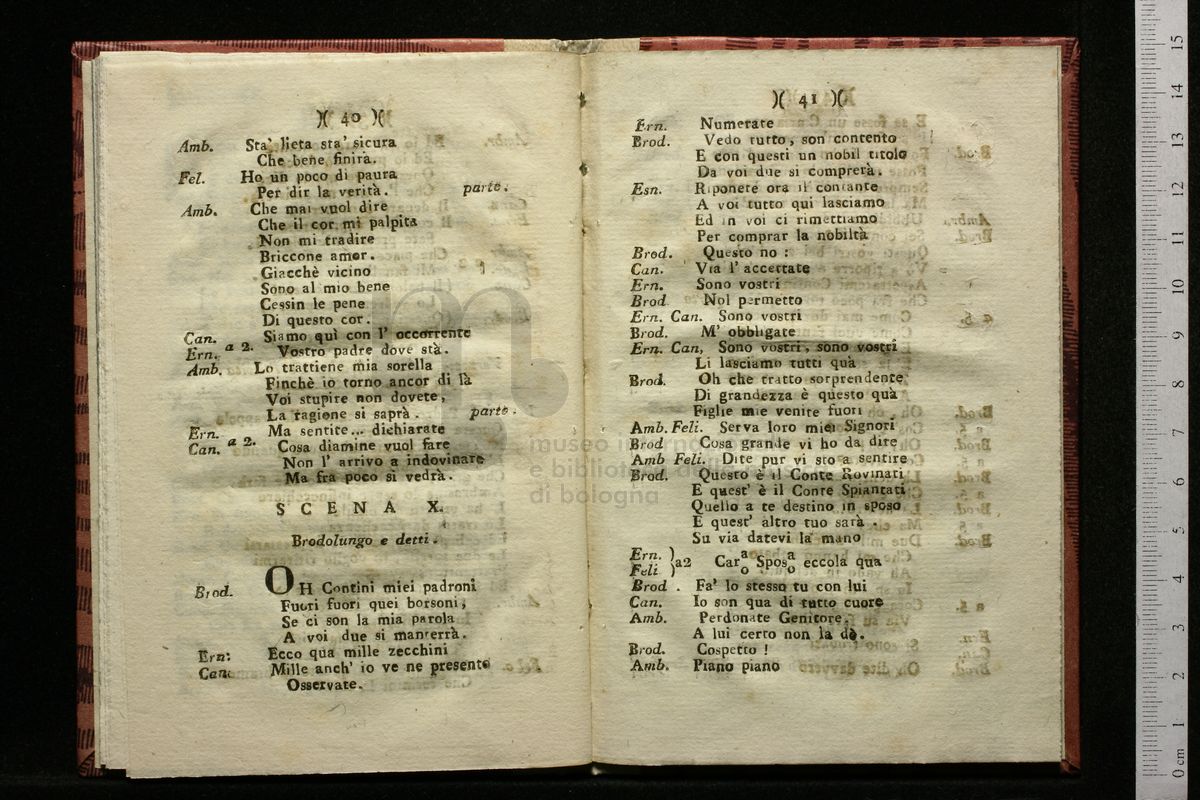 )( 40 )(
Amb. Sta' lieta sta' sicura
Che bene finirà.
Fel. Ho un poco di paura
Per dir la verità. parte.
Amb. Che mai vuol dire
Che il cor mi palpita
Non mi tradire
Briccone amor.
Giacchè vicino
Sono al mio bene
Cessin le pene
Di questo cor.
Can. Siamo quì con l' occorrente
Ern. a 2. Vostro padre dove stà.
Amb. Lo trattiene mia sorella
Finchè io torno ancor di là
Voi stupire non dovete,
La ragione si saprà. parte.
Ern. Ma sentite... dichiarate
Can. a 2. Cosa diamine vuol fare
Non l' arrivo a indovinare
Ma fra poco si vedrà.
SCENA X.
Brodolungo e detti.
Brod. OH Contini miei padroni
Fuori fuori quei borsoni,
Se ci son la mia parola
A voi due si manterrà.
Ern: Ecco qua mille zecchini
Can. Mille anch' io ve ne presento
Osservate.
)( 41 )(
Ern. Numerate
Brod. Vedo tutto, son contento
E con questi un nobil titolo
Da voi due si comprerà.
Esn. Riponete ora il contante
A voi tutto qui lasciamo
Ed in voi ci rimettiamo
Per comprar la nobiltà
Brod. Questo no:
Can. Via l' accettate
Ern. Sono vostri
Brod. Nol permetto
Ern. Can. Sono vostri
Brod. M' obbligate
Ern. Can, Sono vostri, sono vostri
Li lasciamo tutti quà
Brod. Oh che tratto sorprendente
Di grandezza è questo quà
Figlie mie venite fuori
Amb. Feli. Serva loro miei Signori
Brod Cosa grande vi ho da dire
Amb Feli. Dite pur vi sto a sentire
Brod. Questo è il Conte Rovinati
E quest' è il Conte Spiantati
Quello a te destino in sposo
E quest' altro tuo sarà.
Su via datevi la mano
Ern. Feli } a2 Car a/o Spos a/o eccola qua
Brod. Fa' lo stesso tu con lui
Can. Io son qua di tutto cuore
Amb. Perdonate Genitore,
A lui certo non la dò.
Brod. Cospetto!
Amb. Piano piano
museo
e biblio
di bologna